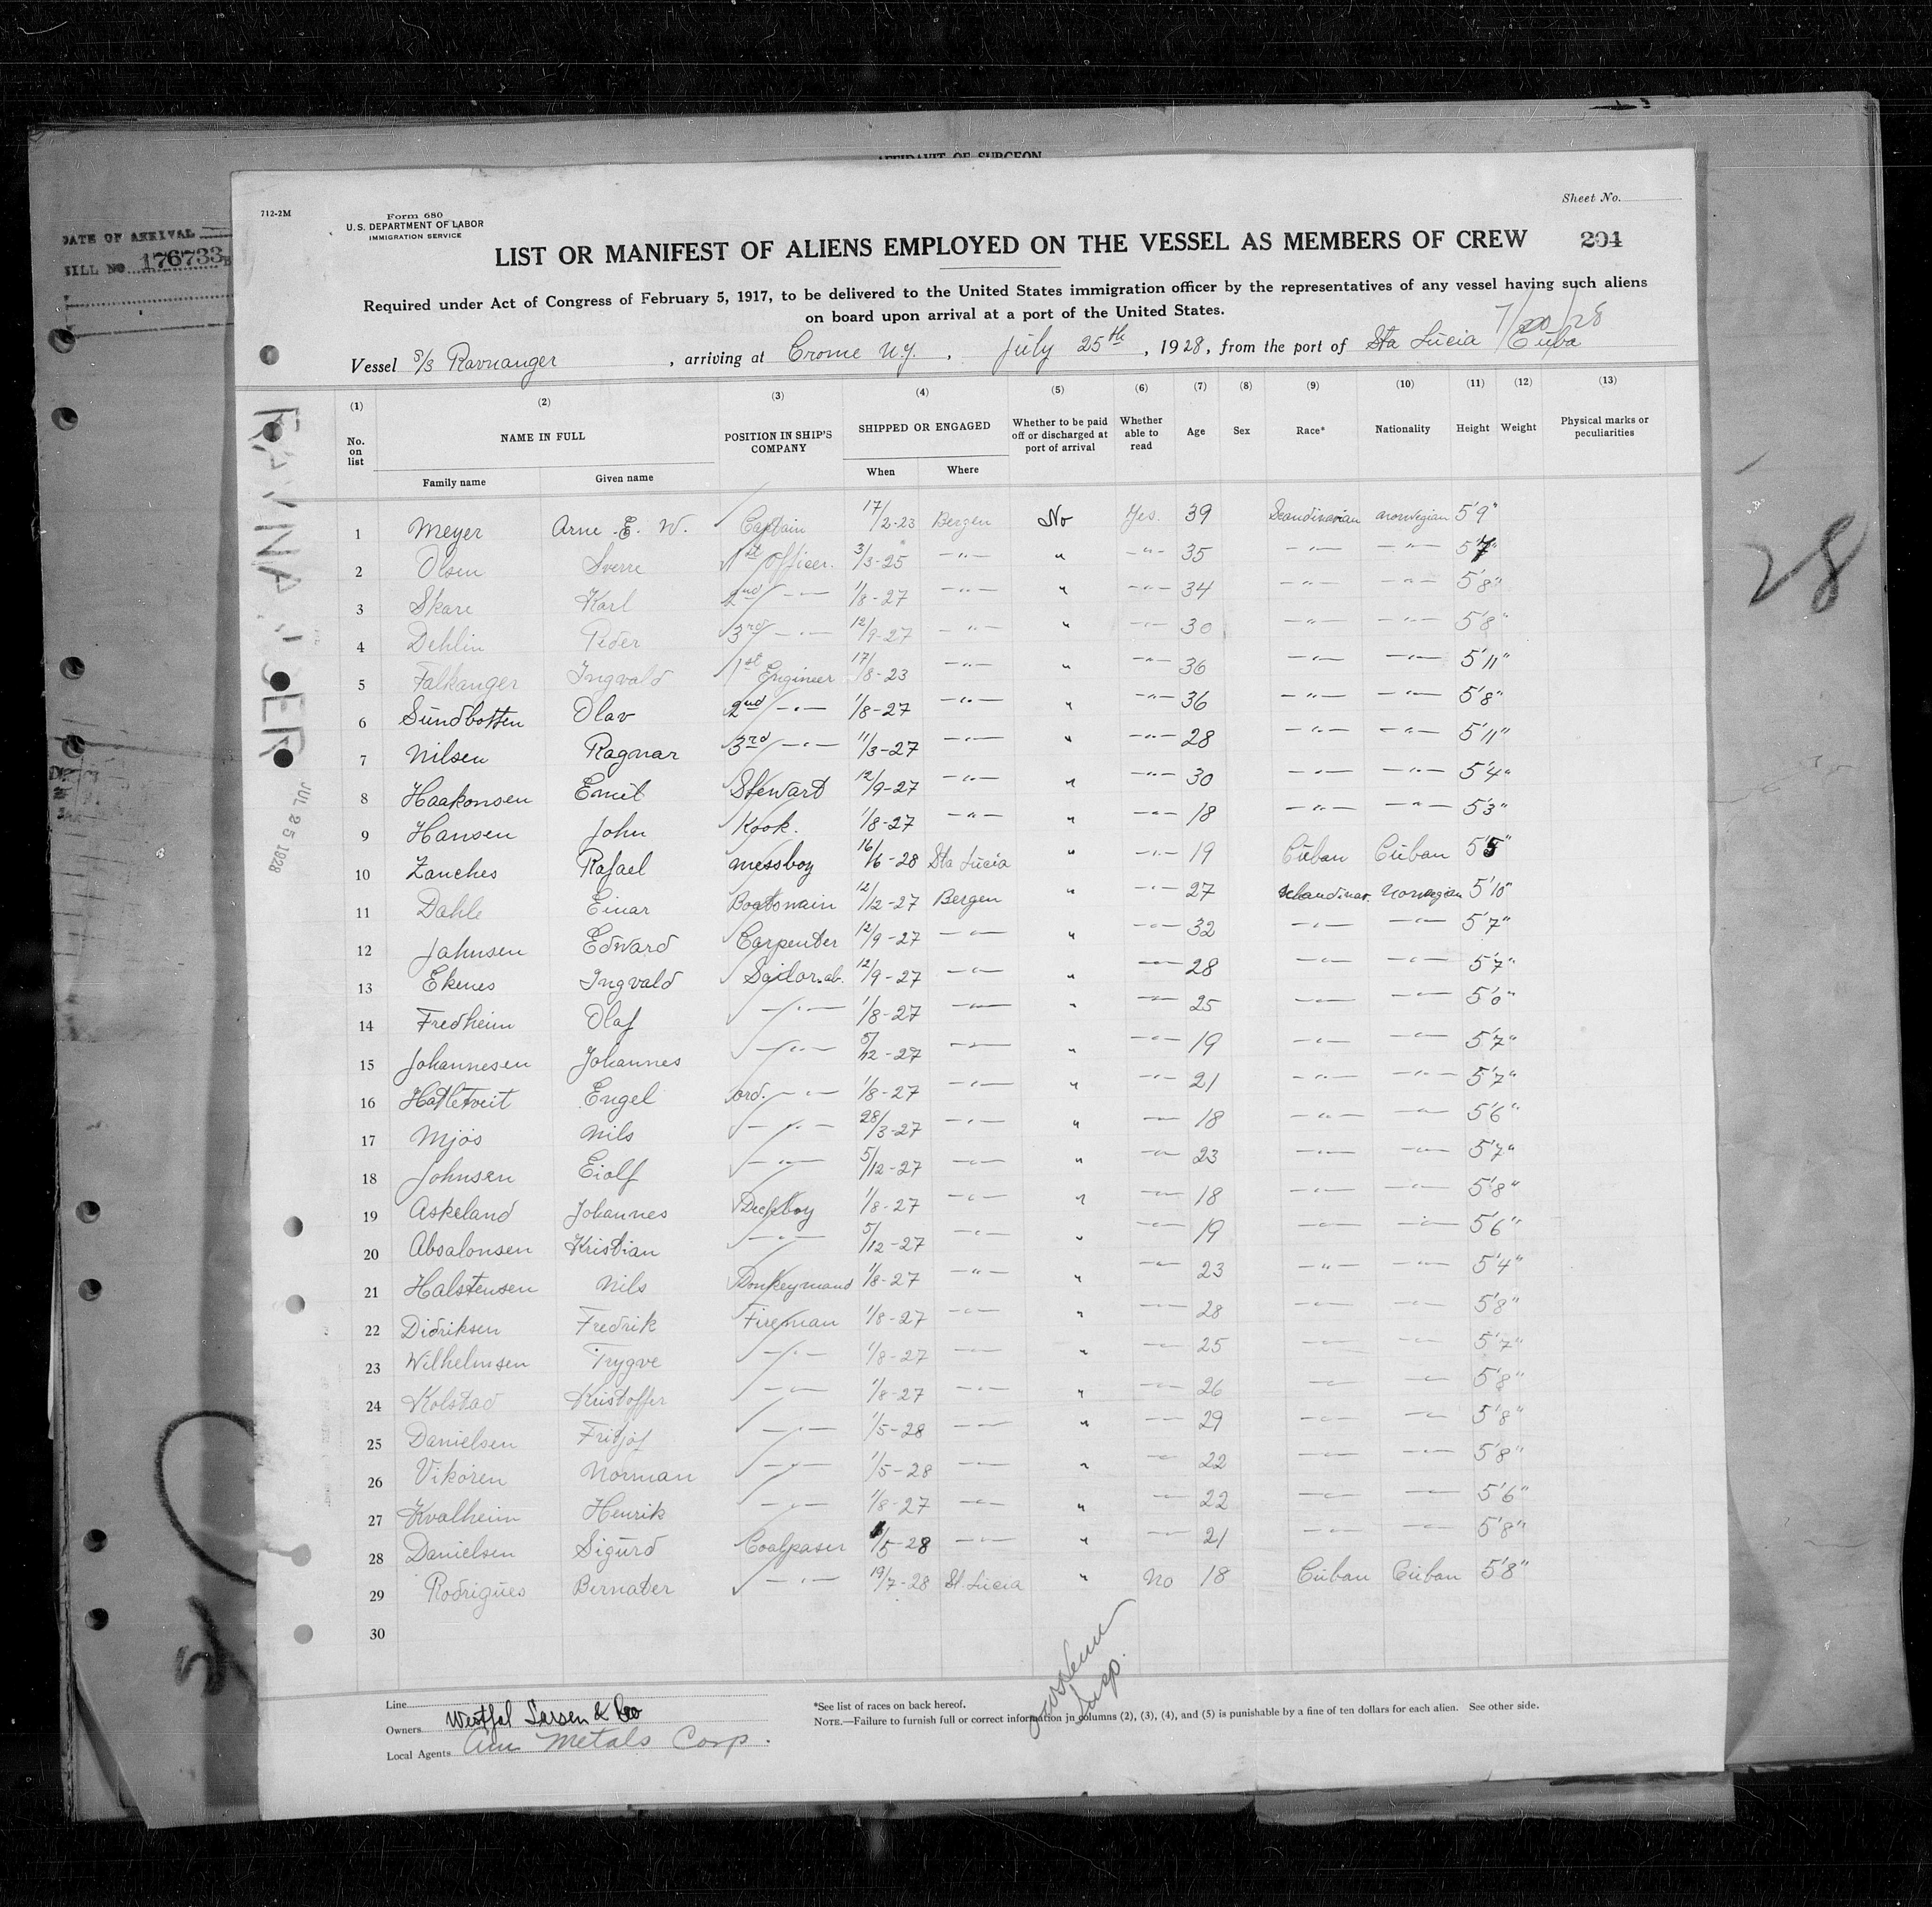 AFFIDAVIT OF SURGEON
DATE OF ARRIVAL
BILL NO 176733
712-2M
Form 680
U.S. DEPARTMENT OF LABOR
IMMIGRATION SERVICE
Sheet No.
LIST OR MANIFEST OF ALIENS EMPLOYED ON THE VESSEL AS MEMBERS OF CREW 204
Required under Act of Congress of February 5, 1917, to be delivered to the United States immigration officer by the representatives of any vessel having such aliens
on board upon arrival at a port of the United States.
7/20/28
Vessel S/S Ravnanger, arriving at Crome N.Y., July 25th, 1928, from the port of Sta Lucia Cuba
(1) (2) (3) (4) (5) (6) (7) (8) (9) (10) (11) (12) (13)
No. on list NAME IN FULL POSITION IN SHIP'S COMPANY SHIPPED OR ENGAGED Whether to be paid off or discharged at port of arrival Whether able to read Age Sex Race* Nationality Height Weight Physical marks or peculiarities
Family name Given name When Where
1 Meyer Arne E. W. Captain 17/2-23 Bergen No Yes. 39 Scandinavian norwegian 5'9"
2 Olsen Sverre 1st Officer. 3/3-25 -"- " -"- 35 -"- -"- 5'7"
3 Skare Karl 2nd -"- 1/8-27 -"- " -"- 34 -"- -"- 5'8"
4 Dehlin Peder 3rd -"- 12/9-27 -"- " -"- 30 -"- -"- 5'8"
5 Falkanger Ingvald 1st Engineer 17/8-23 -"- " -"- 36 -"- -"- 5'11"
6 Sundbotten Olav 2nd -"- 1/8-27 -"- " -"- 36 -"- -"- 5'8"
7 Nilsen Ragnar 3rd -"- 11/3-27 -"- " -"- 28 -"- -"- 5'11"
8 Haakonsen Emil Stewart 12/9-27 -"- " -"- 30 -"- -"- 5'4"
9 Hansen John Kook. 1/8-27 -"- " -"- 18 -"- -"- 5'3"
10 Zanches Rafael messboy 16/6-28 Sta Lucia " -"- 19 Cuban Cuban 5'5"
11 Dahle Einar Boatsmain 12/12-27 Bergen " -"- 27 Scandinav. Norwegian 5'10"
12 Jahnsen Edward Carpenter 12/9-27 -"- " -"- 32 -"- -"- 5'7"
13 Ekenes Ingvald Sailor ab. 12/9-27 -"- " -"- 28 -"- -"- 5'7"
14 Fredheim Olaf -"- 1/8-27 -"- " -"- 25 -"- -"- 5'0"
15 Johannesen Johannes -"- 5/12-27 -"- " -"- 19 -"- -"- 5'7"
16 Hatletveit Engel ord. -"- 1/8-27 -"- " -"- 21 -"- -"- 5'7"
17 Mjøs Nils -"- 28/3-27 -"- " -"- 18 -"- -"- 5'6"
18 Johnsen Eiolf -"- 5/12-27 -"- " -"- 23 -"- -"- 5'7"
19 Askeland Johannes Deckboy 1/8-27 -"- " -"- 18 -"- -"- 5'8"
20 Absalonsen Kristian -"- 5/12-27 -"- " -"- 19 -"- -"- 5'6"
21 Halstensen Nils Donkeymand 1/8-27 -"- " -"- 23 -"- -"- 5'4"
22 Didriksen Fredrik Fireman 1/8-27 -"- " -"- 28 -"- -"- 5'8"
23 Wilhelmsen Trygve -"- 1/8-27 -"- " -"- 25 -"- -"- 5'7"
24 Kolstad Kristoffer -"- 1/8-27 -"- " -"- 26 -"- -"- 5'8"
25 Danielsen Fritjof -"- 1/5-28 -"- " -"- 29 -"- -"- 5'8"
26 Vikøren Norman -"- 1/5-28 -"- " -"- 22 -"- -"- 5'8"
27 Kvalheim Henrik -"- 1/8-27 -"- " -"- 22 -"- -"- 5'6"
28 Danielsen Sigurd Coalpaser 1/5-28 -"- " -"- 21 -"- -"- 5'8"
29 Rodrigues Bernader -"- 19/7-28 St. Lucia " No 18 Cuban Cuban 5'8"
30
RAVNANGER
JUL 25 1928
28
Insp.
Line
Owners Westfal Larsen & Co
Local Agents Am Metals Corp.
*See list of races on back hereof.
NOTE.—Failure to furnish full or correct information in columns (2), (3), (4), and (5) is punishable by a fine of ten dollars for each alien. See other side.